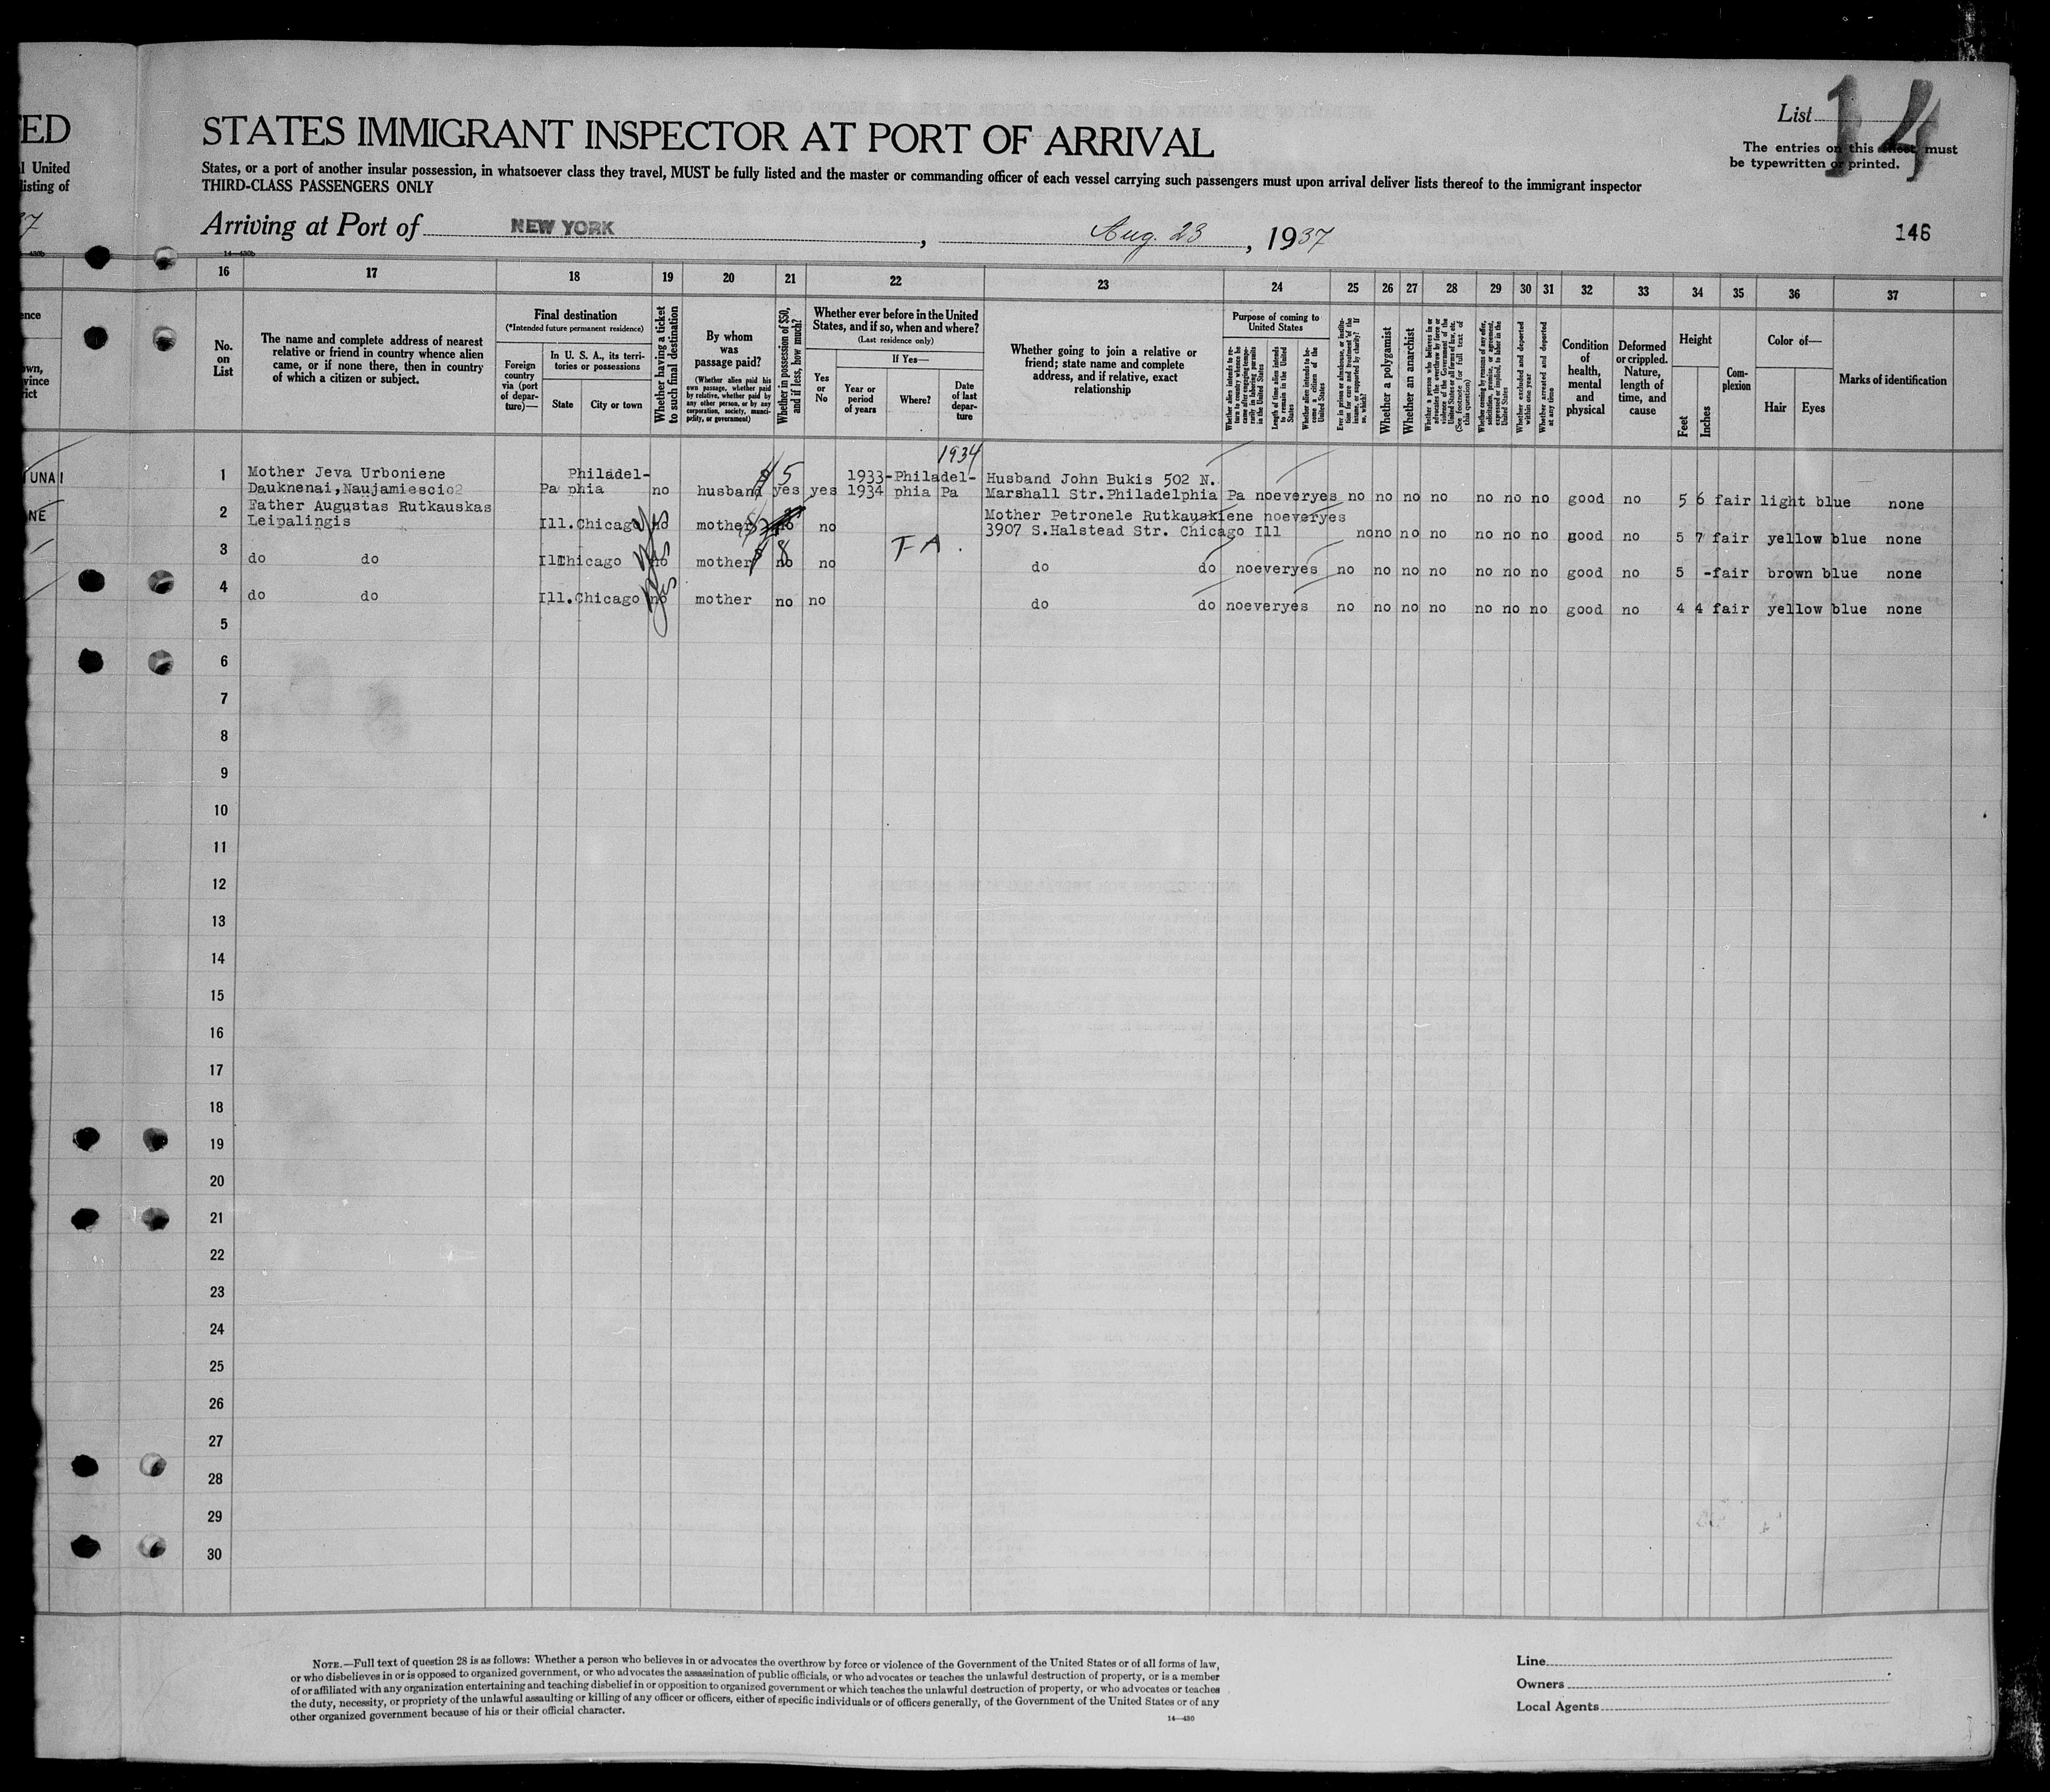 ED
STATES IMMIGRANT INSPECTOR AT PORT OF ARRIVAL
List 14
The entries on this sheet must
be typewritten or printed.
l United
isting of
States, or a port of another insular possession, in whatsoever class they travel, MUST be fully listed and the master or commanding officer of each vessel carrying such passengers must upon arrival deliver lists thereof to the immigrant inspector
THIRD-CLASS PASSENGERS ONLY
37
Arriving at Port of NEW YORK, Aug. 23, 1937
146
14—430b
16 17 18 19 20 21 22 23 24 25 26 27 28 29 30 31 32 33 34 35 36 37
No. on List
The name and complete address of nearest relative or friend in country whence alien came, or if none there, then in country of which a citizen or subject.
Final destination
(*Intended future permanent residence)
Foreign country via (port of departure)—
In U. S. A., its territories or possessions
State
City or town
Whether having a ticket to such final destination
By whom was passage paid?
(Whether alien paid his own passage, whether paid by relative, whether paid by any other person, or by any corporation, society, municipality, or government)
Whether in possession of $50, and if less, how much?
Whether ever before in the United States, and if so, when and where?
(Last residence only)
Yes or No
If Yes—
Year or period of years
Where?
Date of last departure
Whether going to join a relative or friend; state name and complete address, and if relative, exact relationship
Purpose of coming to United States
Whether alien intends to return to country whence he came after engaging temporarily in laboring pursuits in the United States
Length of time alien intends to remain in the United States
Whether alien intends to become a citizen of the United States
Ever in prison or almshouse, or institution for care and treatment of the insane, or supported by charity? If so, which?
Whether a polygamist
Whether an anarchist
Whether a person who believes in or advocates the overthrow by force or violence of the Government of the United States or all forms of law, etc. (See footnote for full text of this question)
Whether coming by reason of any offer, solicitation, promise, or agreement, expressed or implied, to labor in the United States
Whether excluded and deported within one year
Whether arrested and deported at any time
Condition of health, mental and physical
Deformed or crippled. Nature, length of time, and cause
Height
Feet
Inches
Complexion
Color of—
Hair
Eyes
Marks of identification
1934
UNA
1 Mother Jeva Urboniene Philadel- $5 1933-Philadel- Husband John Bukis 502 N.
Dauknenai,Naujamiescio Pa phia no husband yes yes 1934 phia Pa Marshall Str.Philadelphia Pa noeveryes no no no no no no no good no 5 6 fair light blue none
NE
2 Father Augustas Rutkauskas Mother Petronele Rutkauskiene noeveryes
Leipalingis Ill.Chicago no mother no no 3907 S.Halstead Str. Chicago Ill nono no no no no no good no 5 7 fair yellow blue none
yes
3 do do Ill Chicago no mother $8 no no T A. do do noeveryes no no no no no no no good no 5 - fair brown blue none
yes
4 do do Ill.Chicago no mother no no do do noeveryes no no no no no no no good no 4 4 fair yellow blue none
yes
5
6
7
8
9
10
11
12
13
14
15
16
17
18
19
20
21
22
23
24
25
26
27
28
29
30
NOTE.—Full text of question 28 is as follows: Whether a person who believes in or advocates the overthrow by force or violence of the Government of the United States or of all forms of law,
or who disbelieves in or is opposed to organized government, or who advocates the assassination of public officials, or who advocates or teaches the unlawful destruction of property, or is a member
of or affiliated with any organization entertaining and teaching disbelief in or opposition to organized government or which teaches the unlawful destruction of property, or who advocates or teaches
the duty, necessity, or propriety of the unlawful assaulting or killing of any officer or officers, either of specific individuals or of officers generally, of the Government of the United States or of any
other organized government because of his or their official character.
14—430
Line
Owners
Local Agents